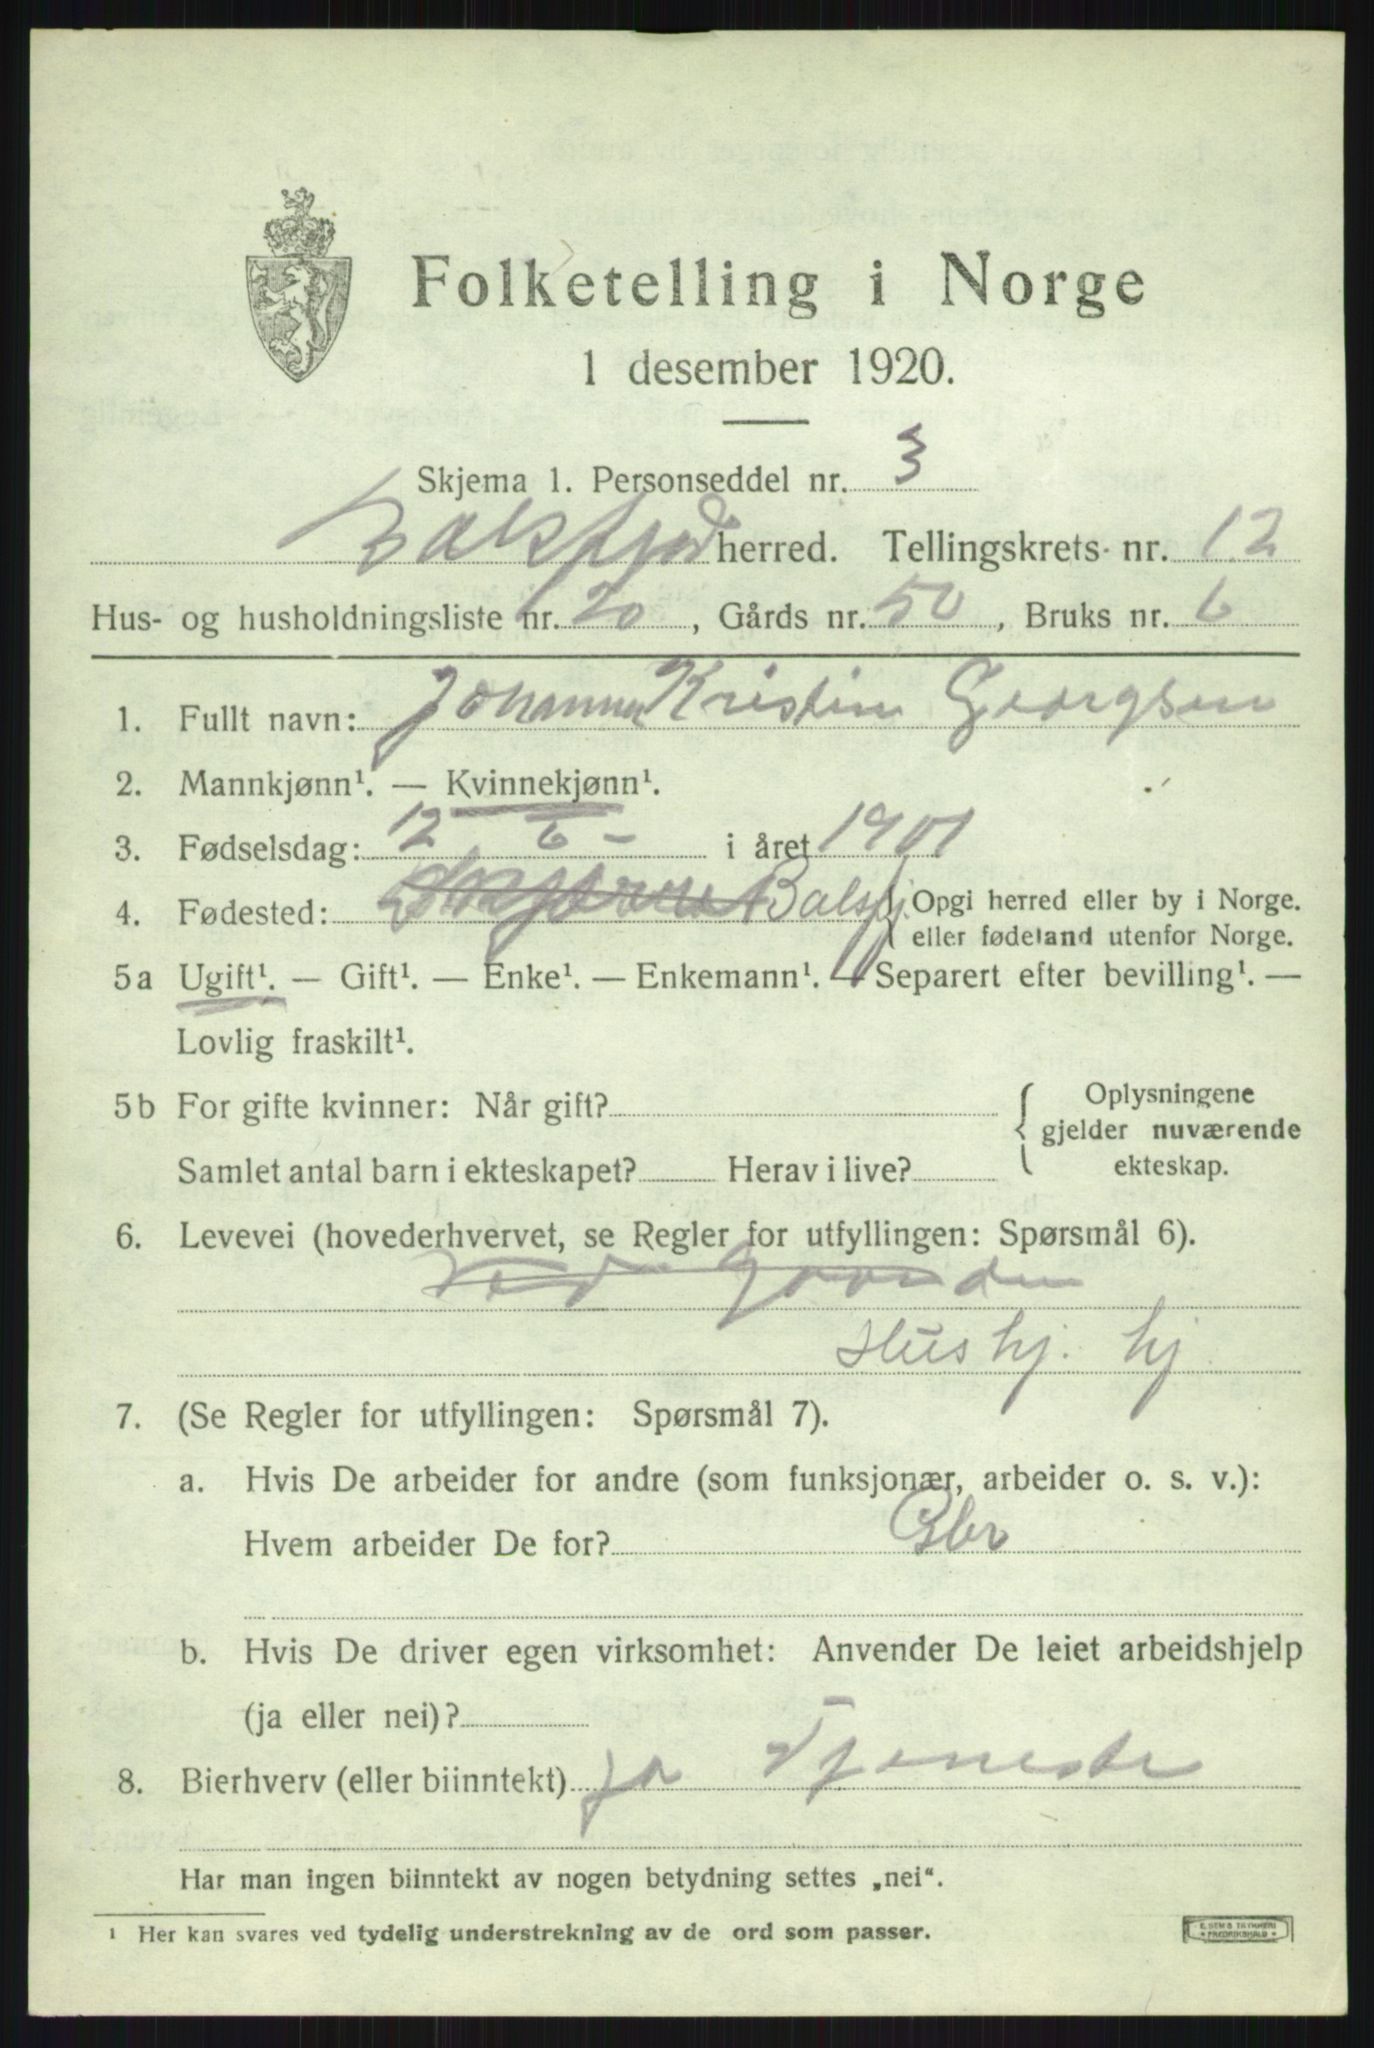 Folketelling i Norge
1 desember 1920.
Skjema 1. Personseddel nr. 3
Balsfjord herred. Tellingskrets nr. 12
Hus- og husholdningsliste nr. 20, Gårds nr. 50, Bruks nr. 6
1. Fullt navn: Johanna Kristine Georgsen
2. Mannkjønn¹. — Kvinnekjønn¹.
3. Fødselsdag: 12 6 - i året 1901
4. Fødested: Balsfj. Opgi herred eller by i Norge.
eller fødeland utenfor Norge.
5a Ugift¹. — Gift¹. — Enke¹. — Enkemann¹. — Separert efter bevilling¹. —
Lovlig fraskilt¹.
5b For gifte kvinner: Når gift? Oplysningene
gjelder nuværende
Samlet antal barn i ekteskapet? Herav i live? ekteskap.
6. Levevei (hovederhvervet, se Regler for utfyllingen: Spørsmål 6).
Ved Gaarden
Hushj. hj
7. (Se Regler for utfyllingen: Spørsmål 7).
a. Hvis De arbeider for andre (som funksjonær, arbeider o. s. v.):
Hvem arbeider De for? Gbr
b. Hvis De driver egen virksomhet: Anvender De leiet arbeidshjelp
(ja eller nei)?
8. Bierhverv (eller biinntekt) ja Tjeneste
Har man ingen biinntekt av nogen betydning settes „nei“.
¹ Her kan svares ved tydelig understrekning av de ord som passer.
E. SEMS TRYKKERI
FREDRIKSHALD